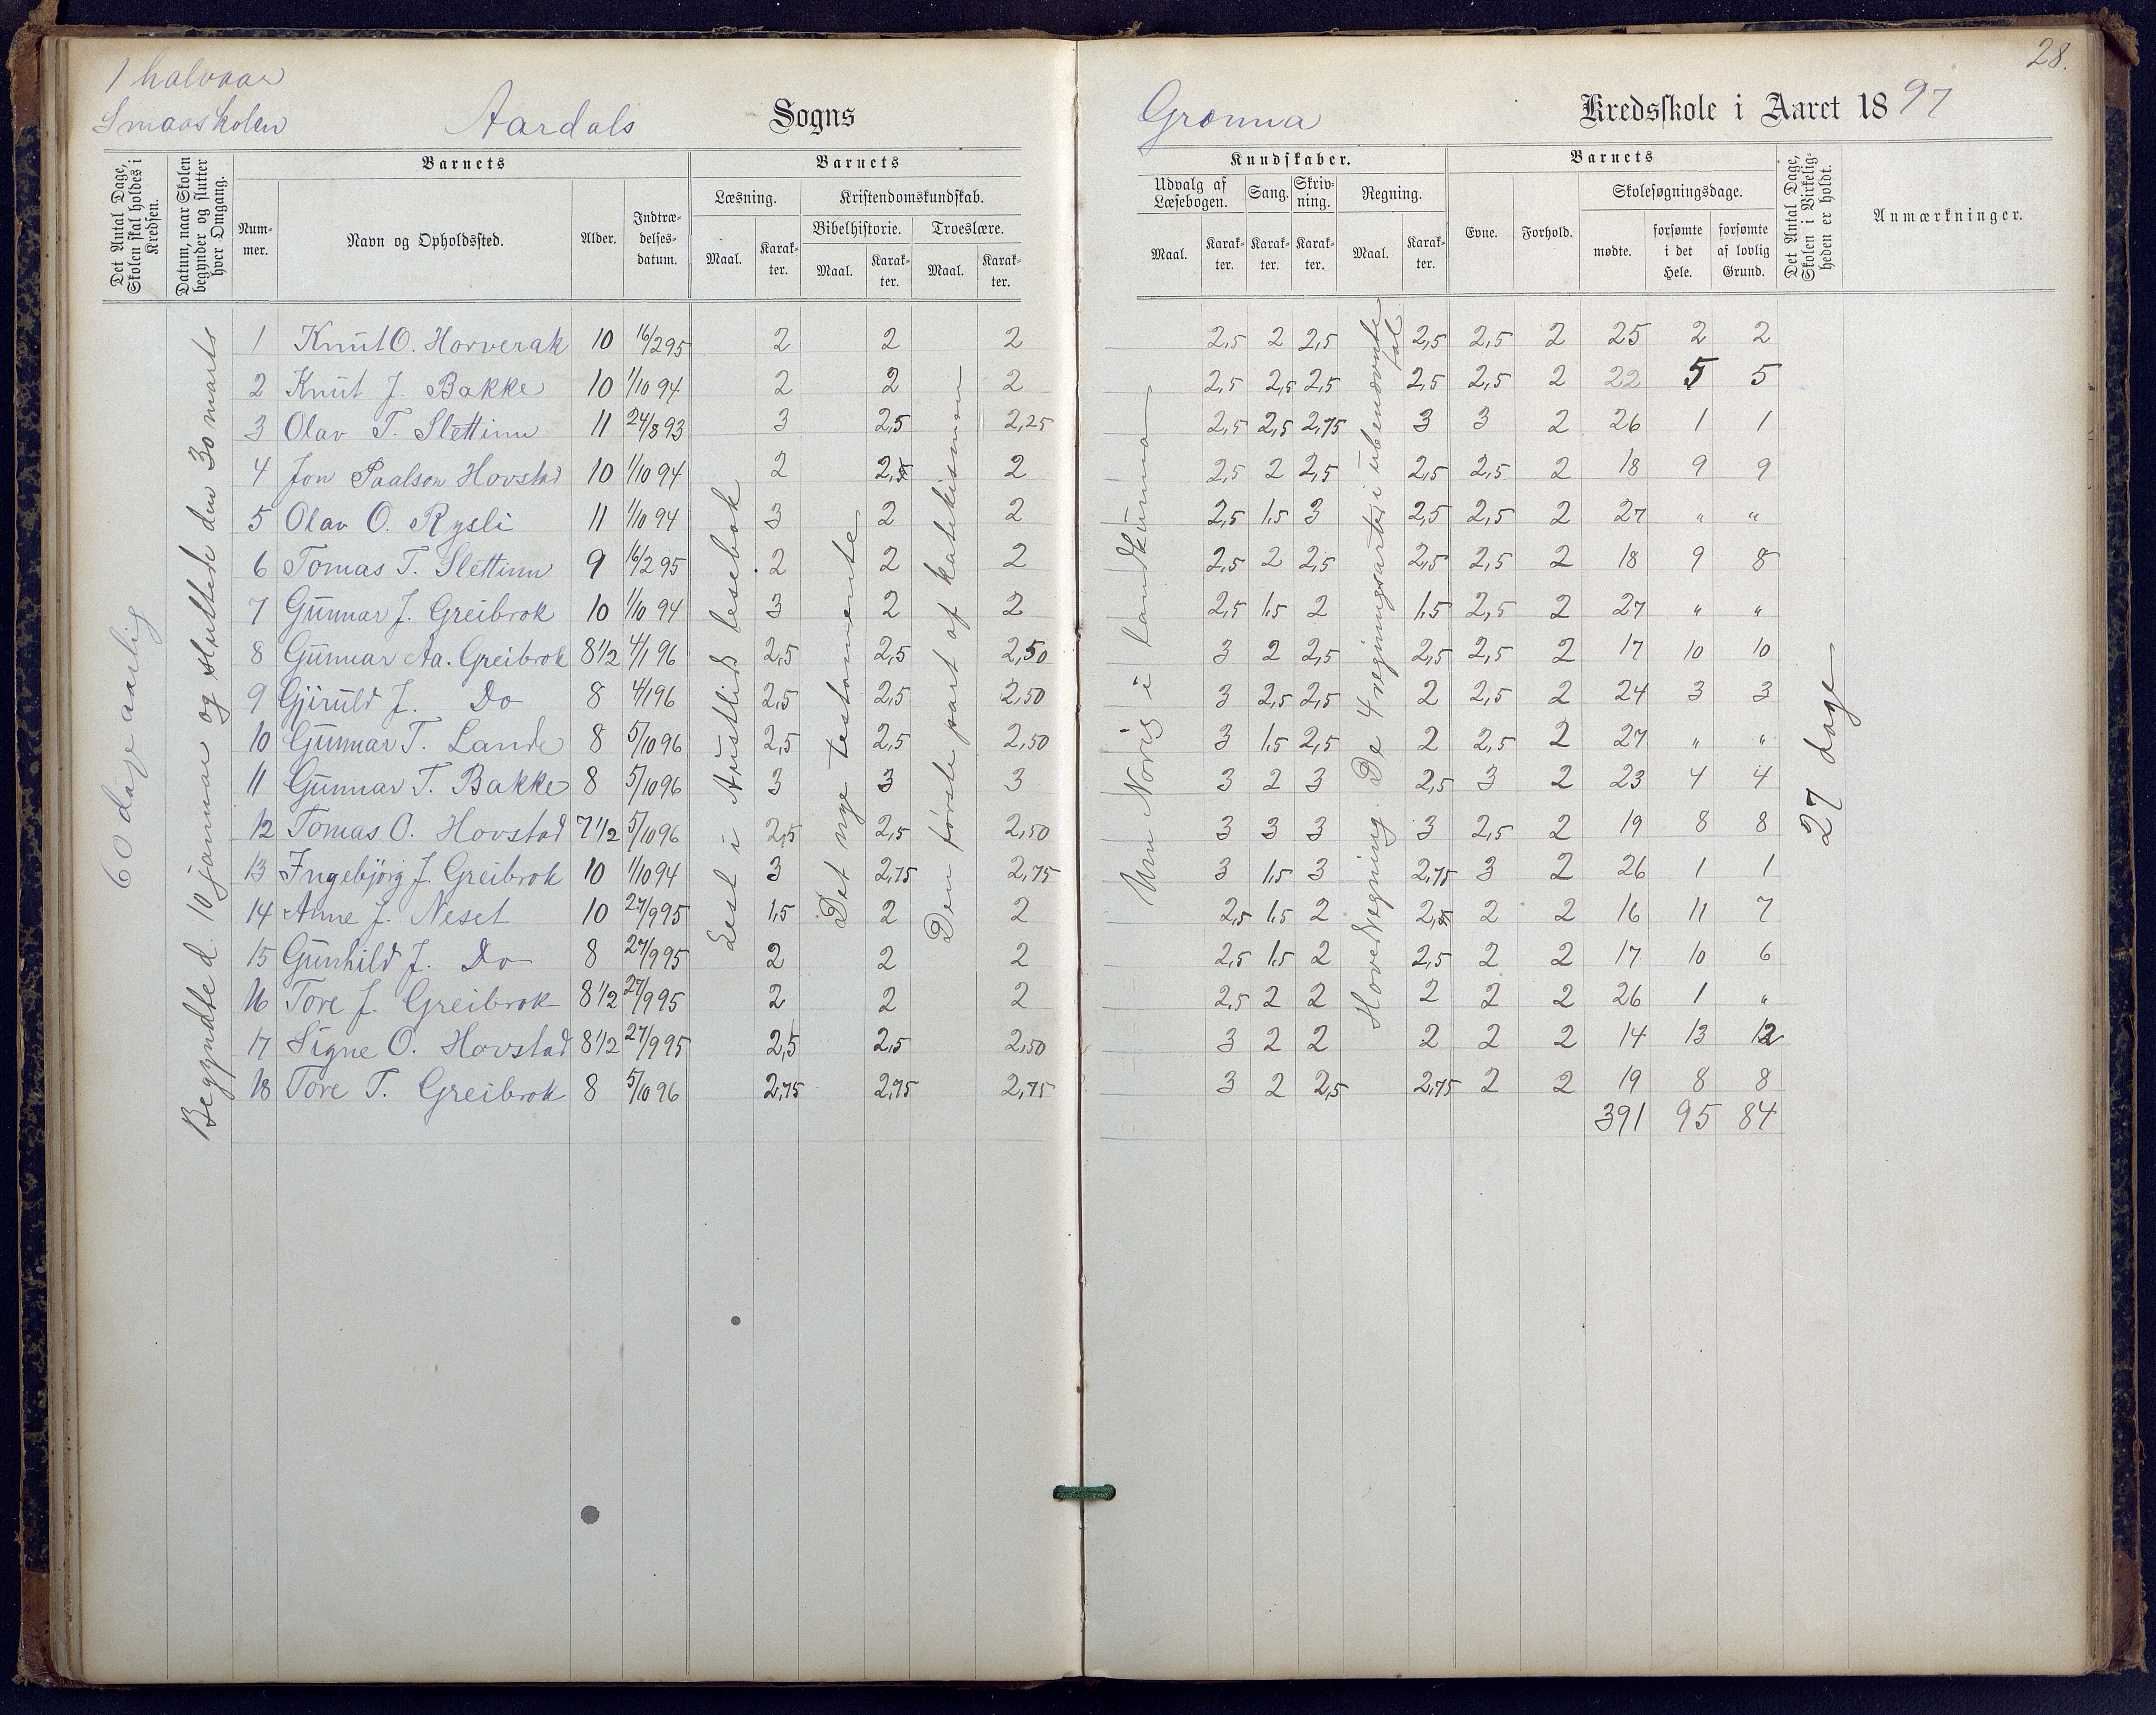 1 halvaar
Smaaskolen
Aardals Sogns
Det Antal Dage, Skolen skal holdes i Kredsen.
Datum, naar Skolen begynder og slutter hver Omgang.
Barnets
Nummer.
Navn og Opholdssted.
Alder.
Indtrædelsesdatum.
Barnets
Læsning.
Maal.
Karakter.
Kristendomskundskab.
Bibelhistorie.
Maal.
Karakter.
Troeslære.
Maal.
Karakter.
60 dage aarlig
Begyndte d. 10 januar og sluttede den 30 marts
Lest i Austlids lesebok
Det nye testamente
Den første part af katekismen
1 Knut O. Horverak 10 16/2 95 2 2 2
2 Knut J. Bakke 10 1/10 94 2 2 2
3 Olav T. Slettinn 11 24/8 93 3 2,5 2,25
4 Jon Paalson Hovstad 10 1/10 94 2 2,5 2
5 Olav O. Rysli 11 1/10 94 3 2 2
6 Tomas T. Slettinn 9 16/2 95 2 2 2
7 Gunnar J. Greibrok 10 1/10 94 3 2 2
8 Gunnar Aa. Greibrok 8 1/2 4/1 96 2,5 2,5 2,50
9 Gjiruld J. Do 8 4/1 96 2,5 2,5 2,50
10 Gunnar T. Lande 8 5/10 96 2,5 2,5 2,50
11 Gunnar T. Bakke 8 5/10 96 3 3 3
12 Tomas O. Hovstad 7 1/2 5/10 96 2,5 2,5 2,50
13 Ingebjörg J. Greibrok 10 1/10 94 3 2,75 2,75
14 Anne J. Neset 10 27/9 95 1,5 2 2
15 Gunhild J. Do 8 27/9 95 2 2 2
16 Tore J. Greibrok 8 1/2 27/9 95 2 2 2
17 Signe O. Hovstad 8 1/2 27/9 95 2,5 2,5 2,50
18 Tore T. Greibrok 8 5/10 96 2,75 2,75 2,75
28.
Grönna Kredsskole i Aaret 1897
Kundskaber.
Udvalg af Læsebogen.
Maal.
Karakter.
Sang.
Karakter.
Skrivning.
Karakter.
Regning.
Maal.
Karakter.
Barnets
Evne.
Forhold.
Skolesøgningsdage.
mødte.
forsømte i det Hele.
forsømte af lovlig Grund.
Det Antal Dage, Skolen i Virkeligheden er holdt.
Anmærkninger.
Um Norig i landkunna
Hovedregning. De 4 regningsarter i ubenævnte tal
27 dage
2,5 2 2,5 2,5 2,5 2 25 2 2
2,5 2,5 2,5 2,5 2,5 2 22 5 5
2,5 2,5 2,75 3 3 2 26 1 1
2,5 2 2,5 2,5 2,5 2 18 9 9
2,5 1,5 3 2,5 2,5 2 27 " "
2,5 2 2,5 2,5 2,5 2 18 9 8
2,5 1,5 2 1,5 2,5 2 27 " "
3 2 2,5 2,5 2,5 2 17 10 10
3 2,5 2,5 2 2,5 2 24 3 3
3 1,5 2,5 2 2,5 2 27 " "
3 2 3 2,5 3 2 23 4 4
3 3 3 3 2,5 2 19 8 8
3 1,5 3 2,75 3 2 26 1 1
2,5 1,5 2 2,5 2 2 16 11 7
2,5 1,5 2 2,5 2 2 17 10 6
2,5 2 2 2 2 2 26 1 "
3 2 2 2 2 2 14 13 12
3 2 2,5 2,75 2 2 19 8 8
391 95 84